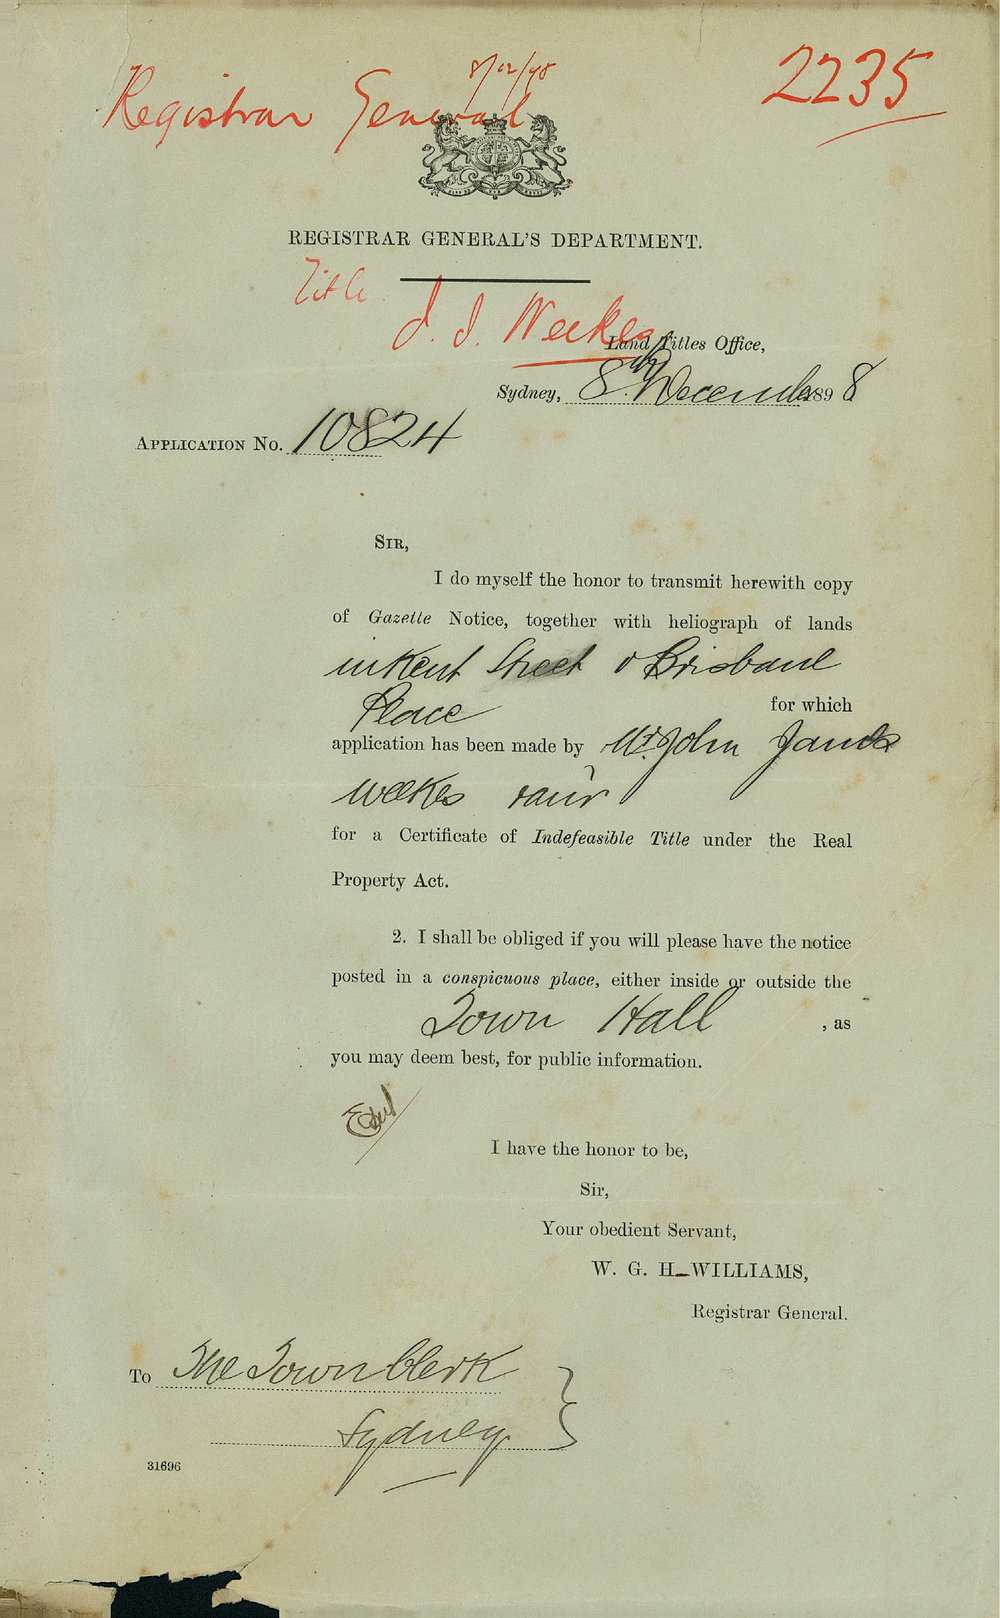 8/12/98
Registrar General
2235
REGISTRAR GENERAL'S DEPARTMENT.
Title
J. J. Weekes
Land Titles Office,
Sydney, 8th December 1898
APPLICATION No. 10824
SIR,
I do myself the honor to transmit herewith copy
of Gazette Notice, together with heliograph of lands
in Kent Street & Brisbane
Place
for which
application has been made by Mr. John James
Weekes & anr
for a Certificate of Indefeasible Title under the Real
Property Act.
2. I shall be obliged if you will please have the notice
posted in a conspicuous place, either inside or outside the
Town Hall , as
you may deem best, for public information.
I have the honor to be,
Sir,
Your obedient Servant,
W. G. H. WILLIAMS,
Registrar General.
To The Town Clerk
Sydney
31696